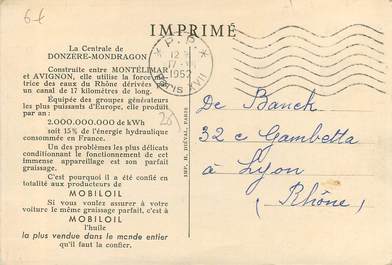 6€
IMPRIMÉ
La Centrale de
DONZERE-MONDRAGON
Construite entre MONTÉLIMAR
et AVIGNON, elle utilise la force motrice
des eaux du Rhône dérivées par
un canal de 17 kilomètres de long.
Équipée des groupes générateurs
les plus puissants d'Europe, elle produit
par an :
2.000.000.000 de kWh
soit 15% de l'énergie hydraulique
consommée en France.
Un des problèmes les plus délicats
conditionnant le fonctionnement de cet
immense appareillage est son parfait
graissage.
C'est pourquoi il a été confié en
totalité aux producteurs de
MOBILOIL
Si vous voulez assurer à votre
voiture le même graissage parfait, c'est à
MOBILOIL
l'huile
la plus vendue dans le monde entier
qu'il faut la confier.
P.P.
12
17
1952
PARIS XVII
IMP. H. DIÉVAL, PARIS
De Banck
32 c Gambetta
à Lyon
(Rhône)